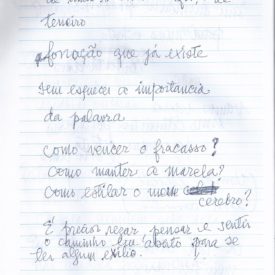 terceiro
fonação que já existe
sem esquecer a importancia
da palavra
como vencer o fracasso?
como manter a marela?
como estilar o
cerebro?
É preciso regar, pensar e sentir
o caminho aberto para se
ler algum exilio.